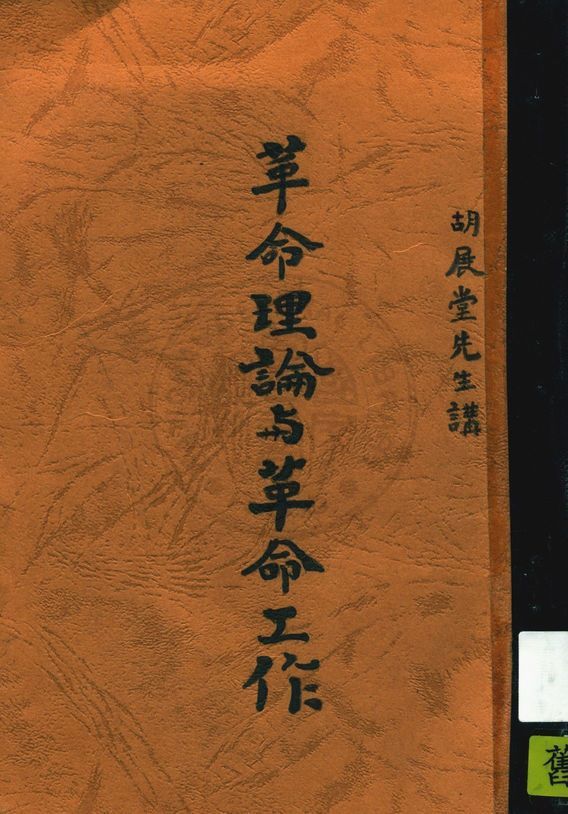 胡展堂先生講
革命理論与革命工作
舊